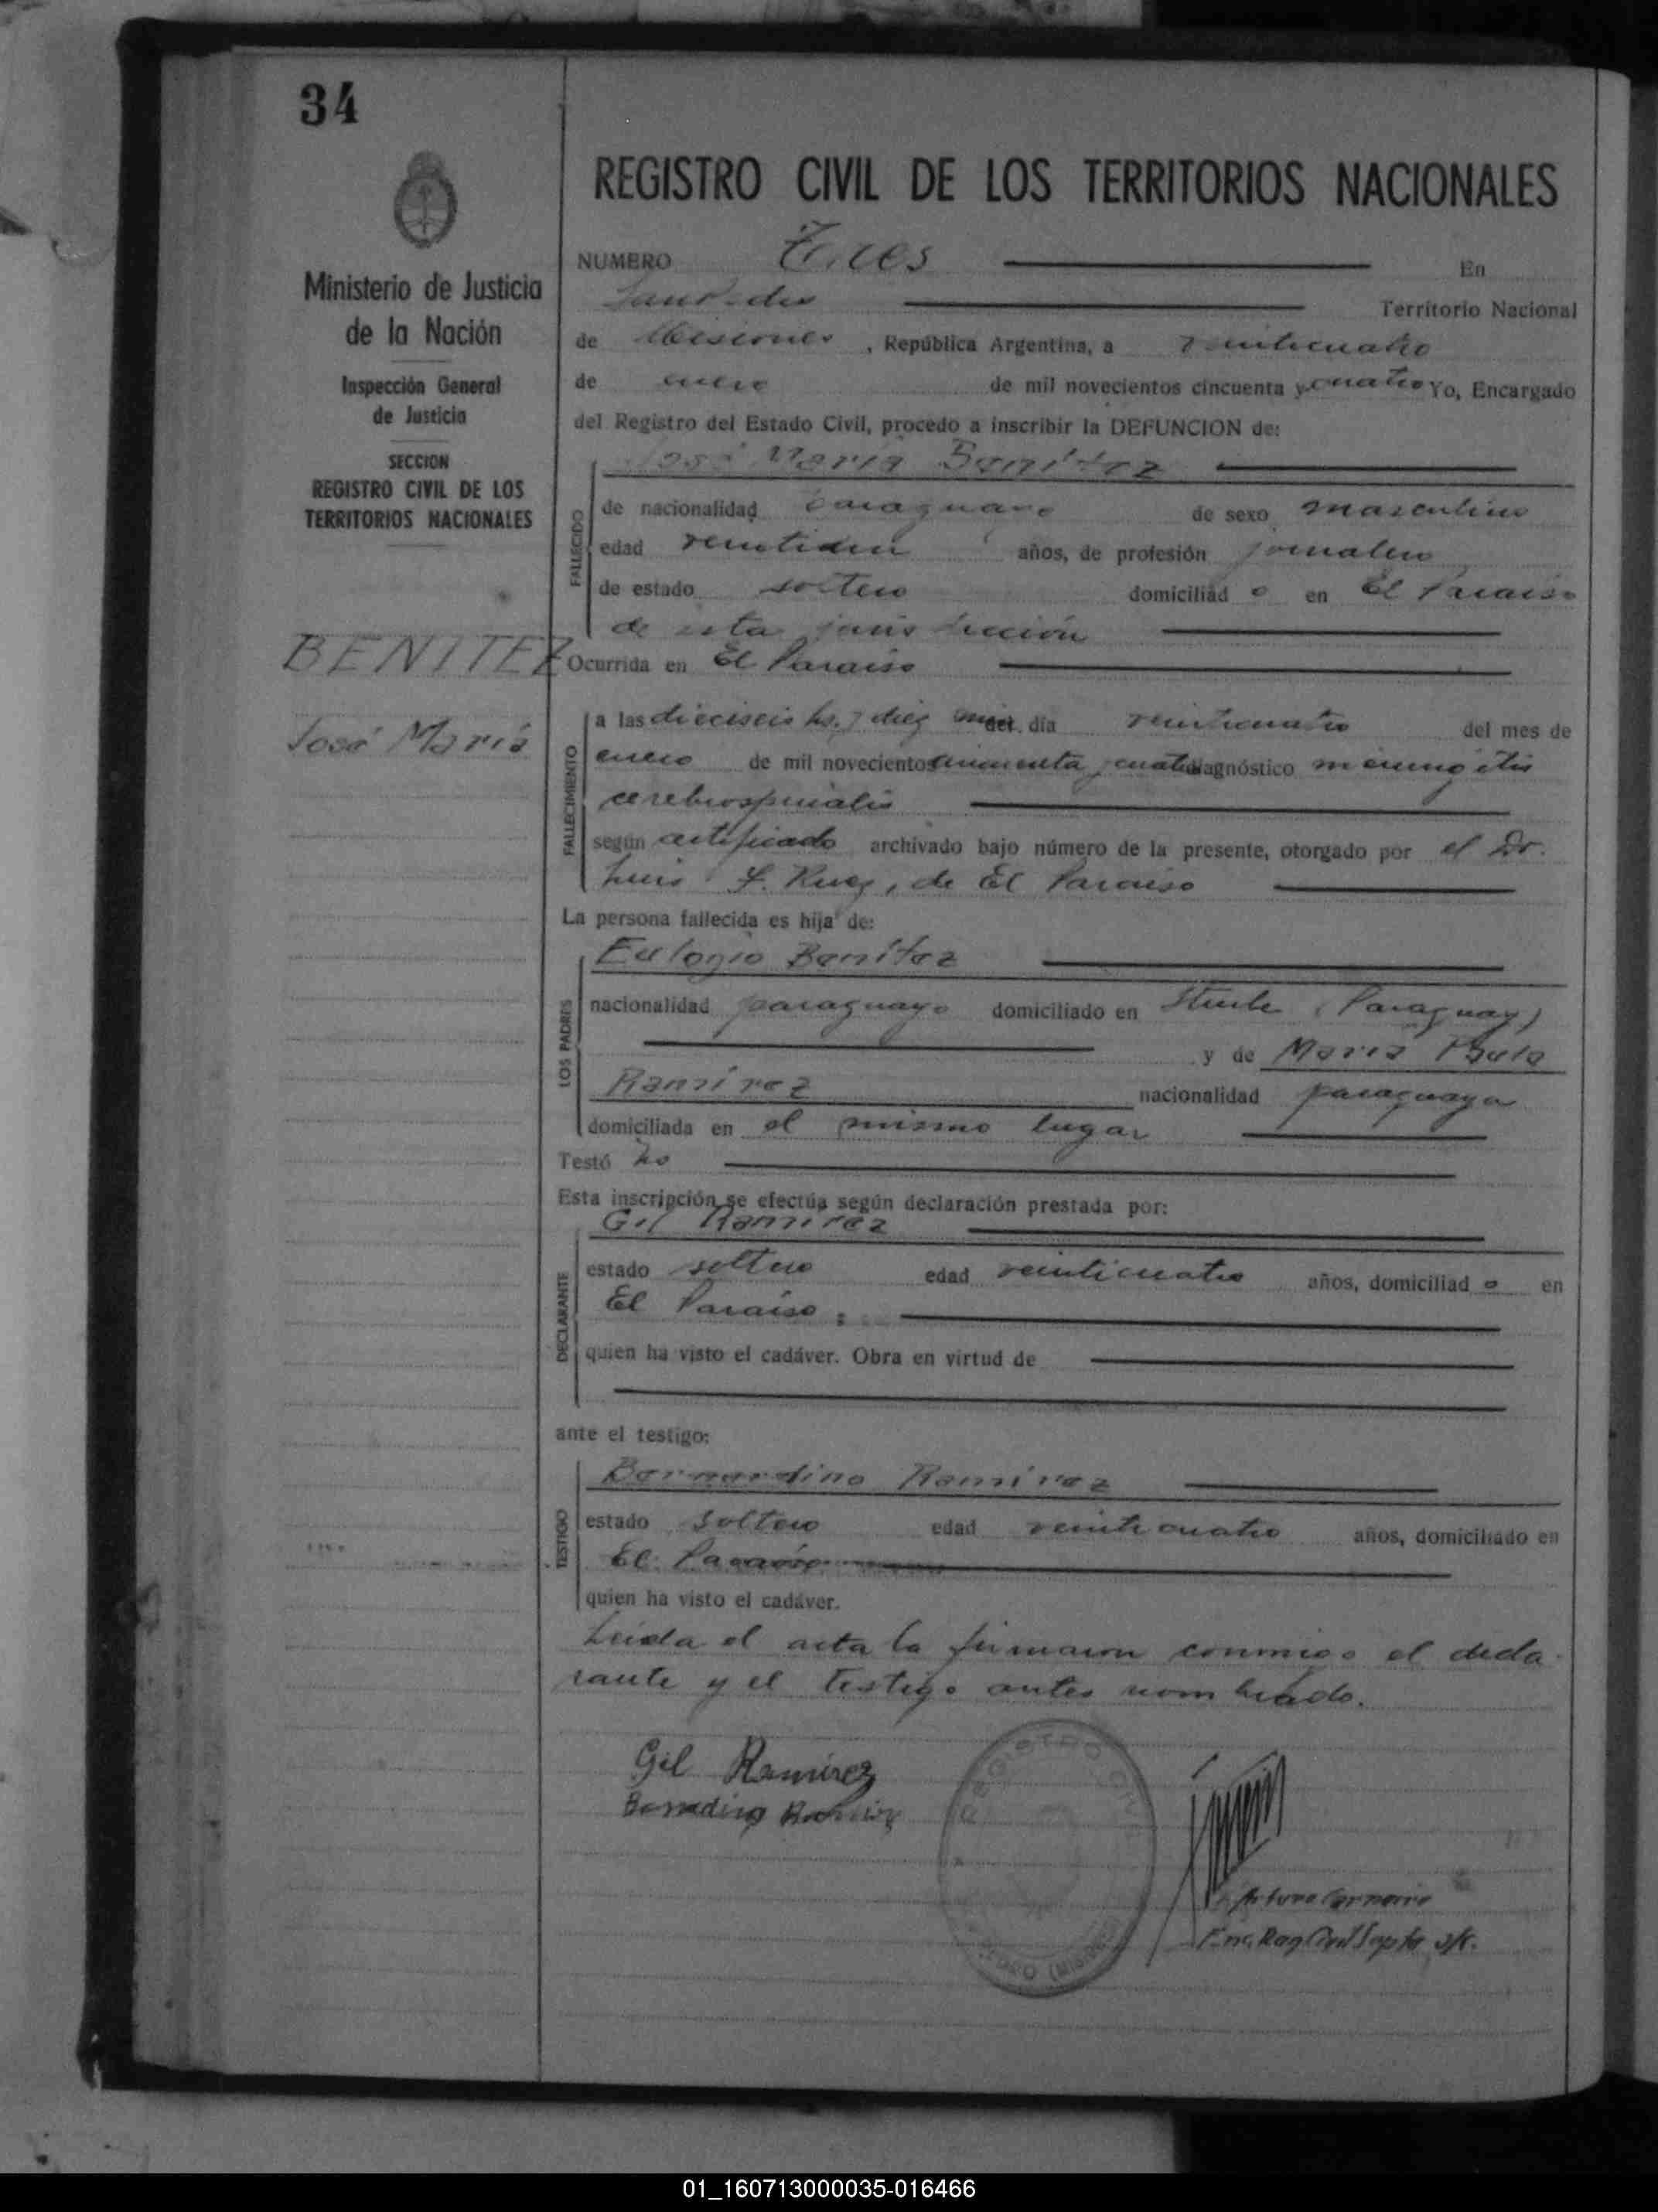 34
REGISTRO CIVIL DE LOS TERRITORIOS NACIONALES
Ministerio de Justicia
de la Nación
Inspección General
de Justicia
SECCION
REGISTRO CIVIL DE LOS
TERRITORIOS NACIONALES
BENITEZ
José María
NUMERO Tres En
San Pedro Territorio Nacional
de Misiones, República Argentina, a veinticuatro
de enero de mil novecientos cincuenta y cuatro Yo, Encargado
del Registro del Estado Civil, procedo a inscribir la DEFUNCION de:
José María Benítez
FALLECIDO
de nacionalidad paraguayo de sexo masculino
edad años, de profesión jornalero
de estado soltero domiciliad o en El Paraiso
de esta jurisdicción
Ocurrida en El Paraiso
FALLECIMIENTO
a las dieciseis hs. y diez min. del día veinticuatro del mes de
enero de mil novecientos cincuenta y cuatro diagnóstico meningitis
cerebrospinalis
según certificado archivado bajo número de la presente, otorgado por el Dr.
Luis F. de El Paraiso
La persona fallecida es hija de:
LOS PADRES
Eulogio Benítez
nacionalidad paraguayo domiciliado en (Paraguay)
y de María Paula
Ramírez nacionalidad paraguaya
domiciliada en el mismo lugar
Testó no
Esta inscripción se efectúa según declaración prestada por:
DECLARANTE
Gil Ramírez
estado soltero edad veinticuatro años, domiciliad o en
El Paraiso;
quien ha visto el cadáver. Obra en virtud de
ante el testigo:
TESTIGO
Bernardino Ramírez
estado soltero edad veinticuatro años, domiciliado en
El Paraiso
quien ha visto el cadáver.
Leida el acta la firmaron conmigo el decla-
rante y el testigo antes nombrado.
Gil Ramirez
Bernardino Ramirez
REGISTRO CIVIL
PEDRO (MISIONES)
Arturo
Enc. Reg. Civil
01_160713000035-016466